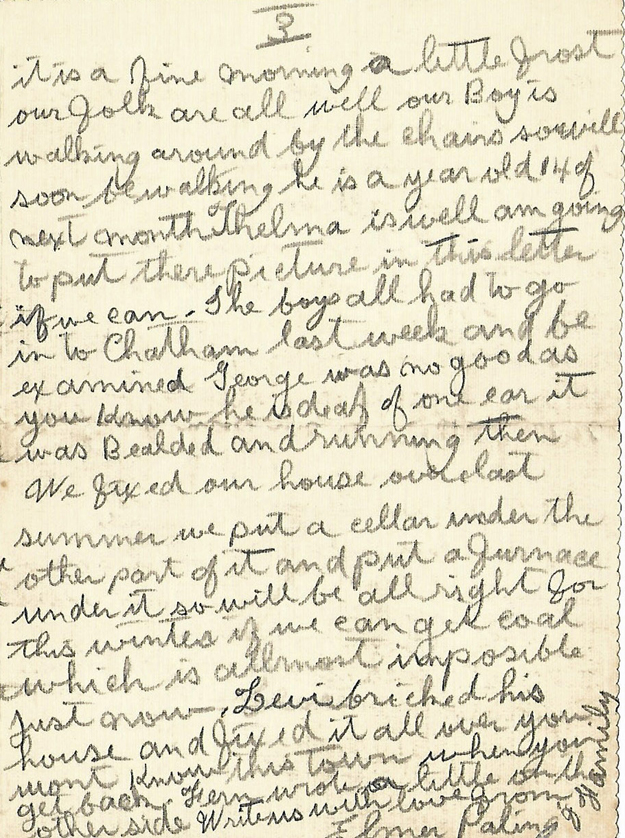 3
it is a fine morning a little frost
our folk are all well our Boy is
walking around by the chairs so will
soon be walking he is a year old 14 of
next month Thelma is well am going
to put there picture in this letter
if we can. The boys all had to go
in to Chatham last week and be
examined George was no good as
you Know he is deaf of one ear it
was Bealded and running then
We fixed our house over last
summer we put a cellar under the
other part of it and put a furnace
under it so will be all right for
this winter if we can get coal
which is allmost imposible
just now. Levi bricked his
house and fixed it all over you
wont Know this town when you
get back. Fern wrote a little on the
other side Write us with love from
Elmer Paling
& Family